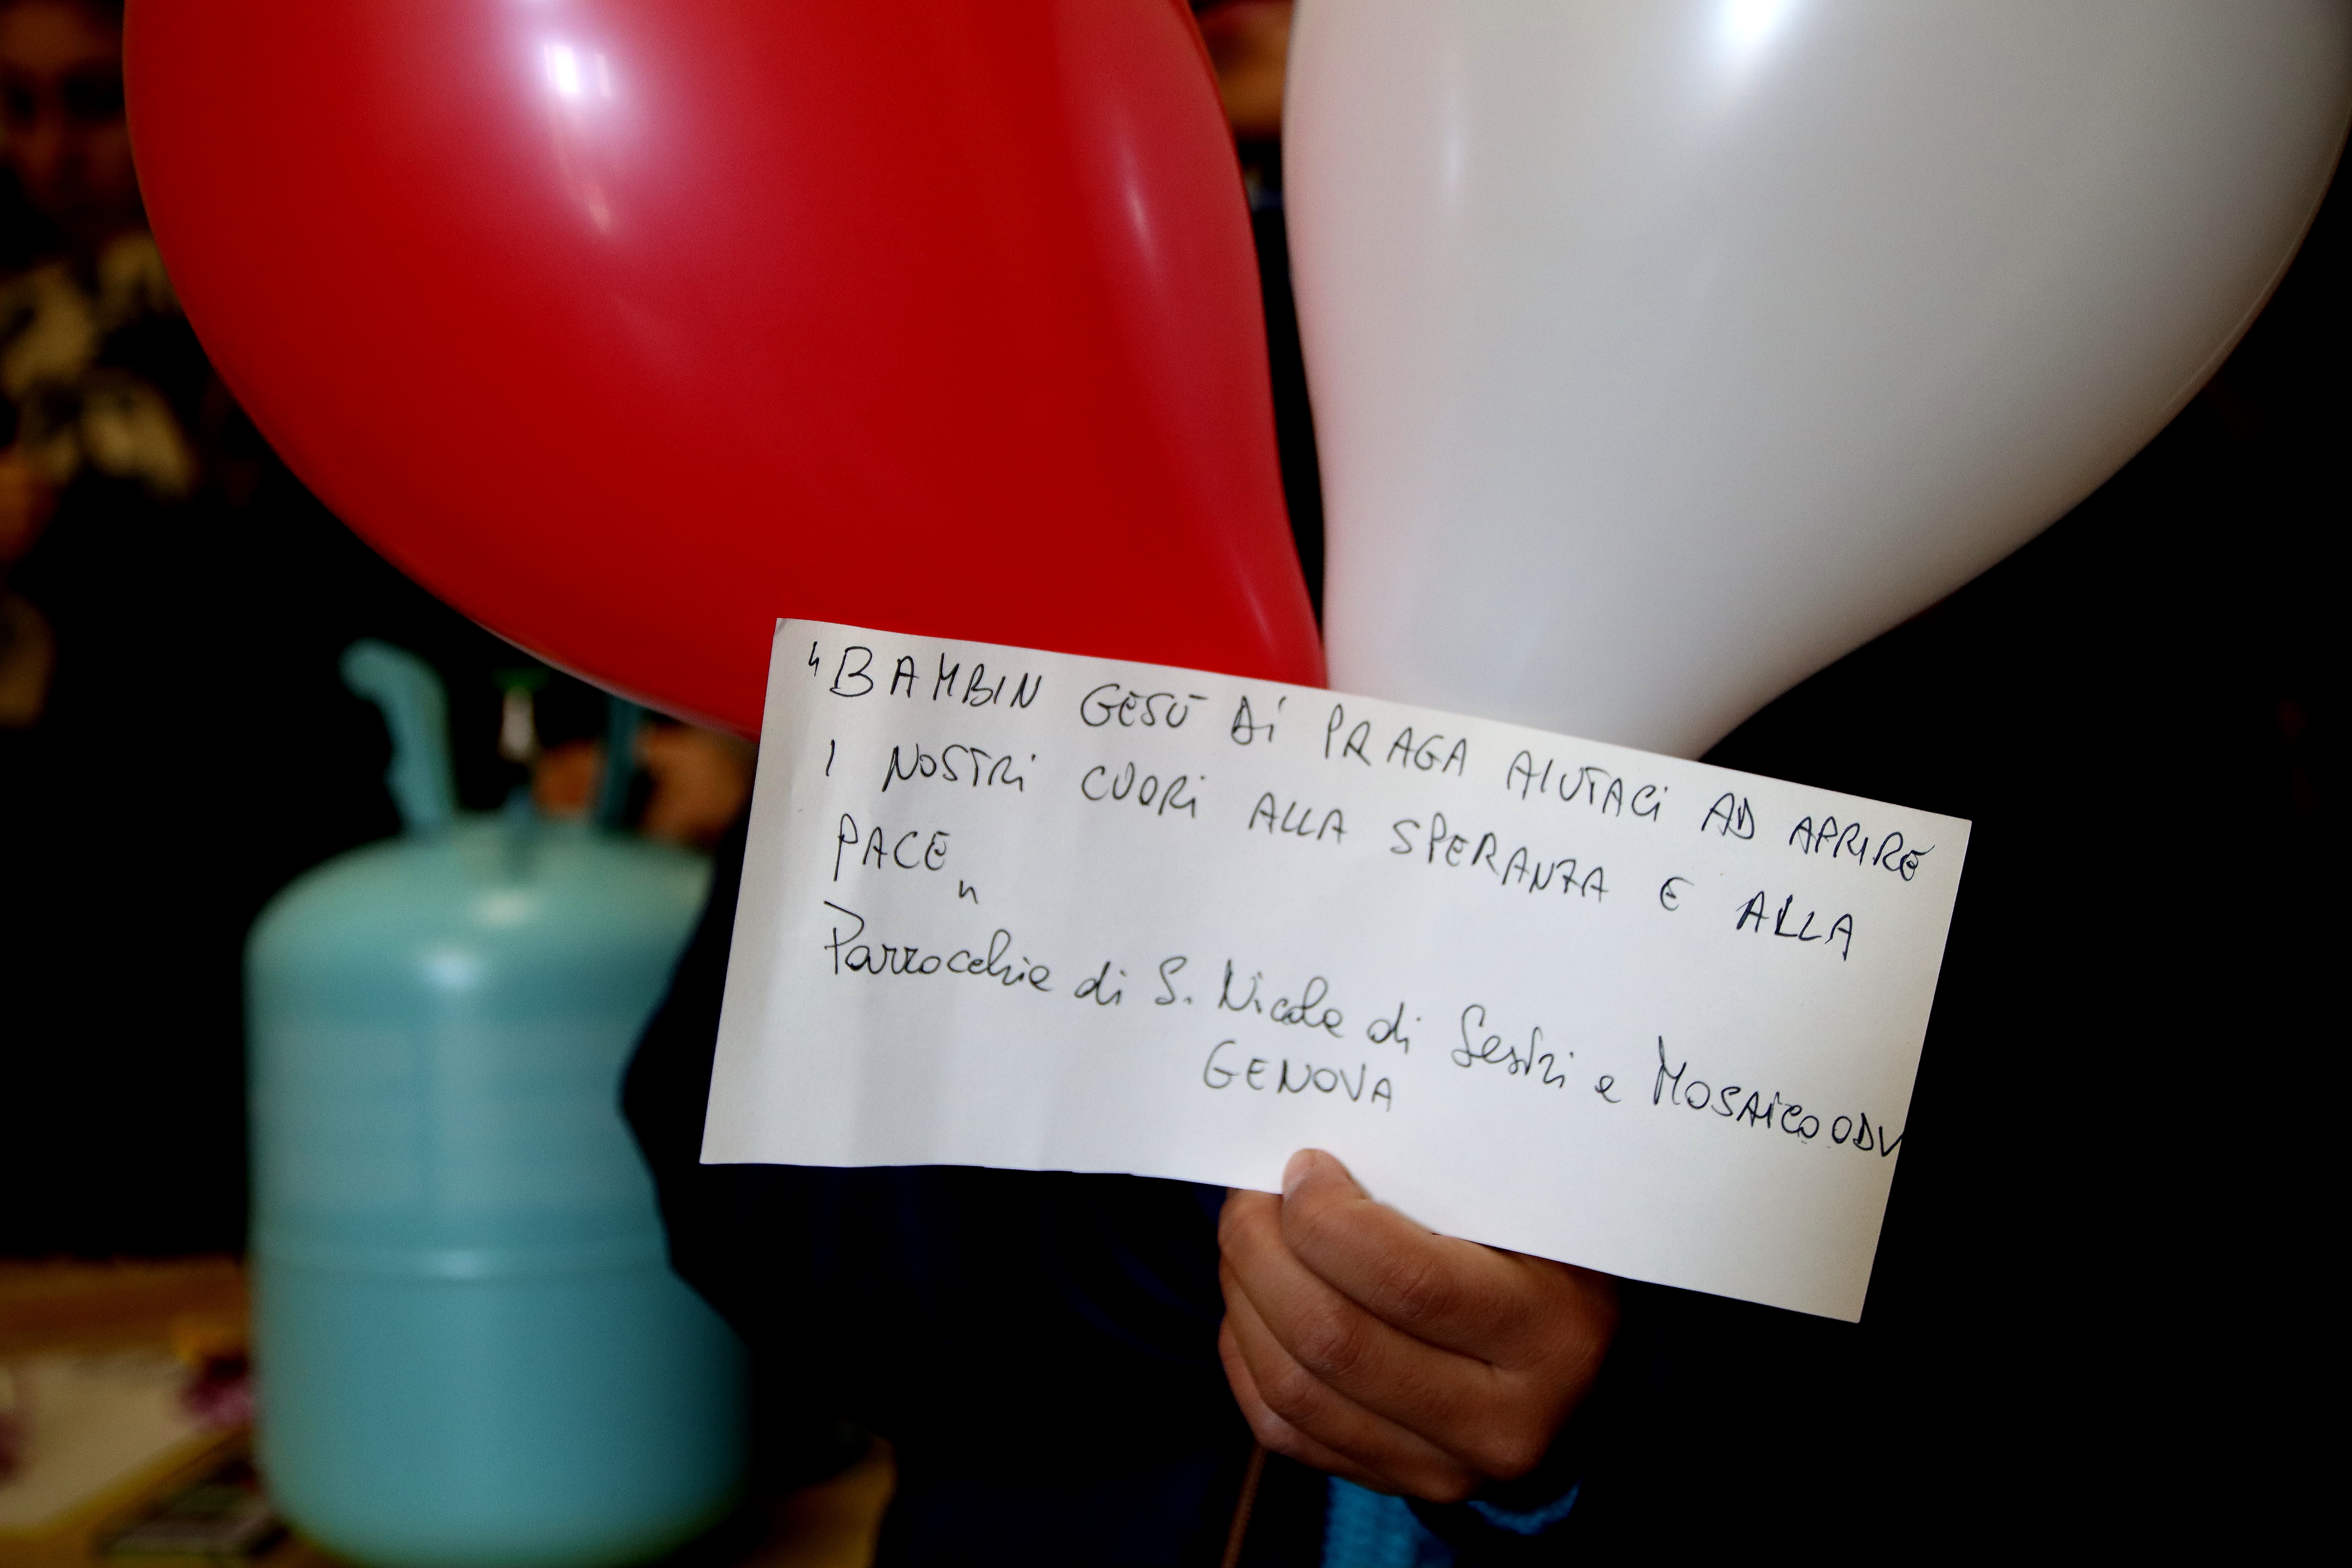 "BAMBIN GESÙ di PRAGA AIUTACI AD APRIRE
I NOSTRI CUORI ALLA SPERANZA E ALLA
PACE"
Parrocchia di S. Nicola di Sestri e MOSAICO ODV
GENOVA